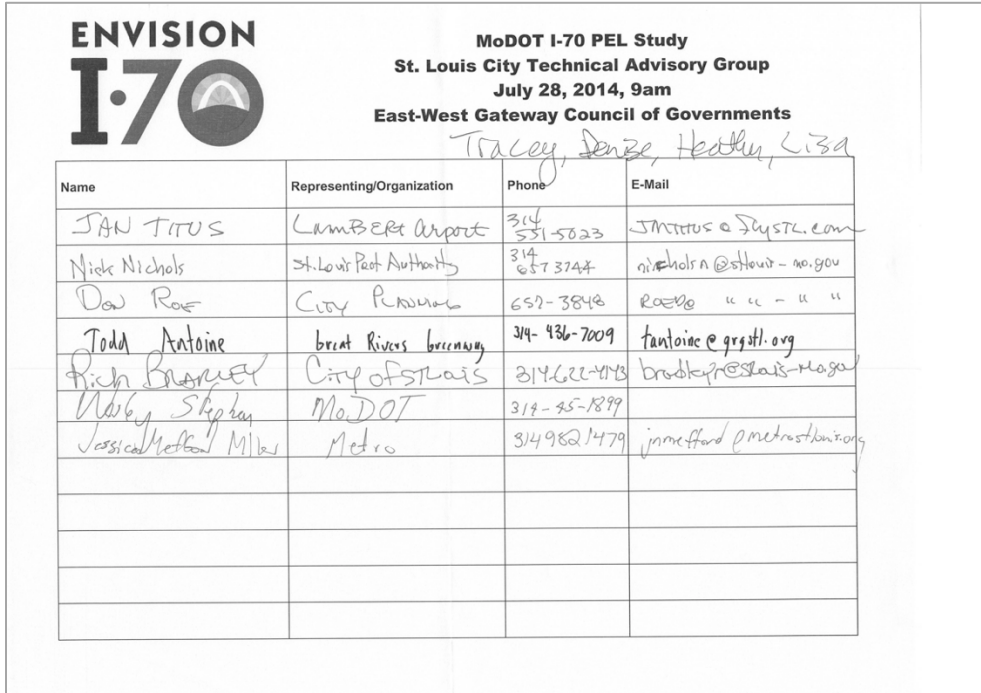 ENVISION
I-70
MoDOT I-70 PEL Study
St. Louis City Technical Advisory Group
July 28, 2014, 9am
East-West Gateway Council of Governments
Tracey, Denise, Heather, Liza
Name Representing/Organization Phone E-Mail
JAN TITUS LAMBERT Airport 314 551-5023 JMTITUS@flystl.com
Nick Nichols St. Louis Port Authority 314 657 3744 nicholsn@stlouis-mo.gov
Don Roe City Planning 657-3848 ROEDO " " - " "
Todd Antoine Great Rivers Greenway 314-436-7009 tantoine@grgstl.org
Rich BRADLEY City of St Louis 314-622-4143 bradleyr@stlouis-mo.gov
Wesley Stephen MoDOT
Jessica Mefford Miller Metro 314 982 1479 jnmefford@metrostlouis.org